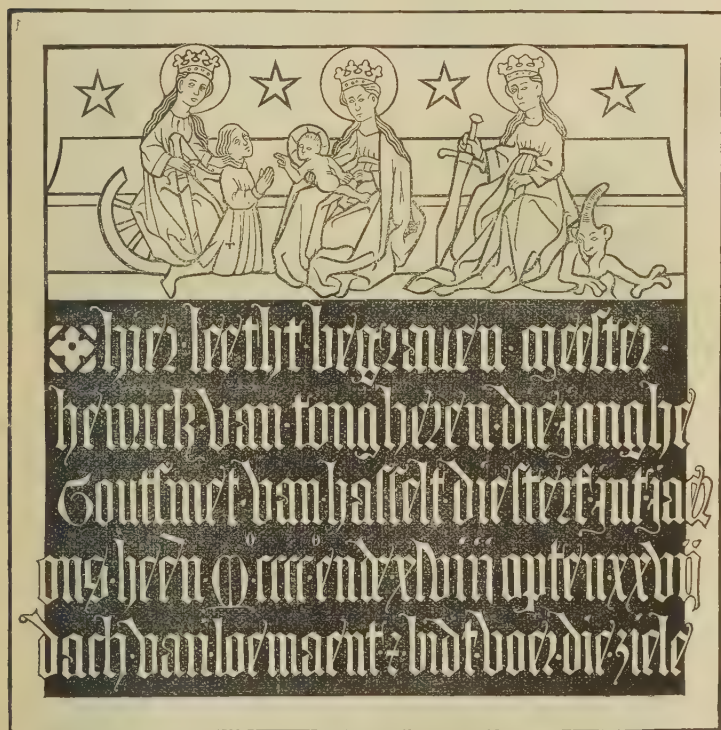 hier·leetht·begrauen·meester·
henrick·van·tongheren·die·jonghe
Goutsmet·van·hasselt·die·sterf·jnt·jaer
ons·heen·M·cccc·ende·xlviij·opten·xxvij
dach·van·loemaent·z·bidt·voer·die·ziele